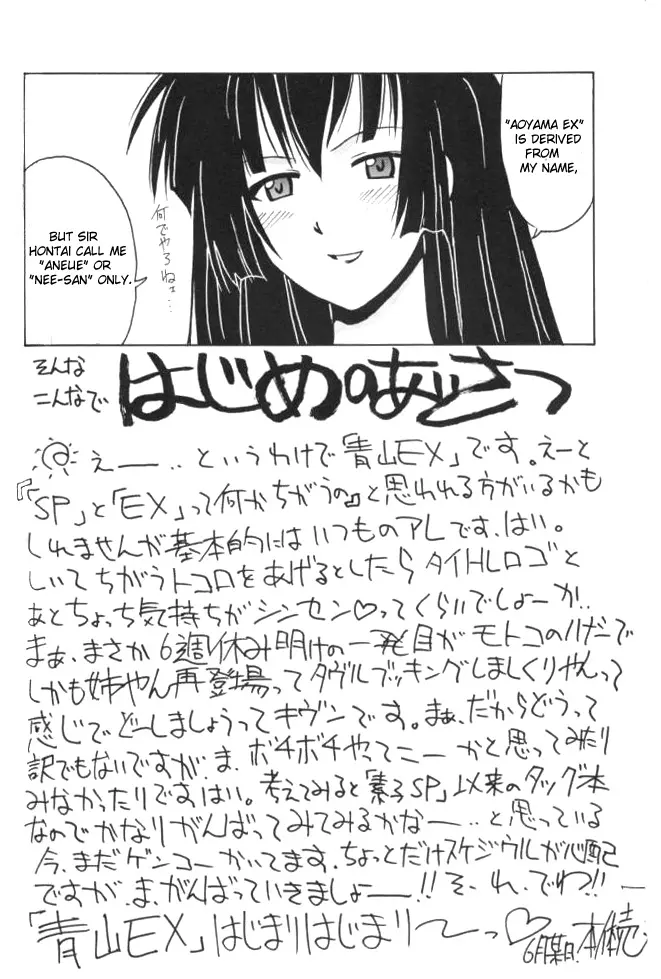 "AOYAMA EX"
IS DERIVED
FROM
MY NAME,
BUT SIR
HONTAI CALL ME
"ANEUE" OR
"NEE-SAN" ONLY.
何でやろねェ…
そんな
こんなで
はじめのあいさつ
えー…というわけで「青山EX」です。えーと
『「SP」と「EX」って何がちがうの』と思われる方がいるかも
しれませんが基本的にはいつものアレです、はい。
しいてちがうトコロをあげるとしたらタイトルロゴと
あとちょっち気持ちがシンセン♡ってくらいでしょーか..
まぁ、まさか6週休み明けの一発目がモトコのハダーで
しかも姉やん再登場ってダヴルブッキングしましくりやんって
感じでどーしましょうってキヴンです。まぁ、だからどうって
訳でもないですが、ま、ボチボチやってこーかと思ってみたり
みなかったりですはい。考えてみると「素子SP」以来のタッグ本
なのでかなりがんばってみてみるかなー…と思っている
今、まだゲンコーかいてます、ちょっとだけスケジウルが心配
ですが、ま、がんばっていきましょー!!そ、れ、でわ!!
「青山EX」はじまりはじまり〜っ♡
6月某日